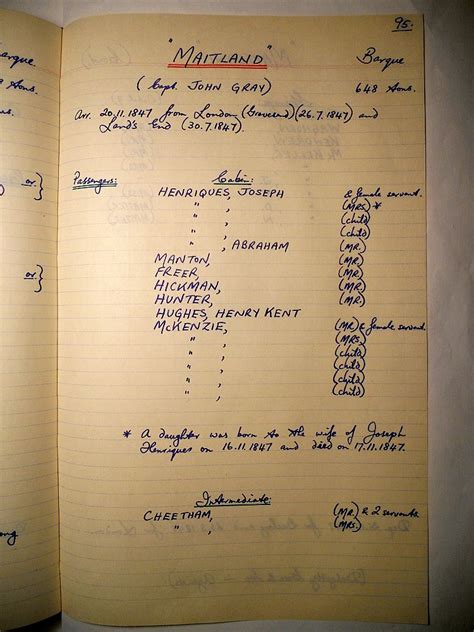 95.
"MAITLAND" Barque
(Capt. JOHN GRAY) 648 tons.
Arr. 20.11.1847 from London (Gravesend) (26.7.1847) and
Land's End (30.7.1847).
Passengers: Cabin:
HENRIQUES, JOSEPH & female servant.
" , (MRS) *
" , (child)
" , (child)
" , ABRAHAM (MR.)
MANTON, (MR.)
FREER, (MR.)
HICKMAN, (MR.)
HUNTER, (MR.)
HUGHES, HENRY KENT
McKENZIE, (MR) & female servant.
" , (MRS.)
" , (child)
" , (child)
" , (child)
" , (child)
* A daughter was born to the wife of Joseph
Henriques on 16.11.1847 and died on 17.11.1847.
Intermediate:
CHEETHAM, (MR.) & 2 servants.
" , (MRS.)
or}
or}